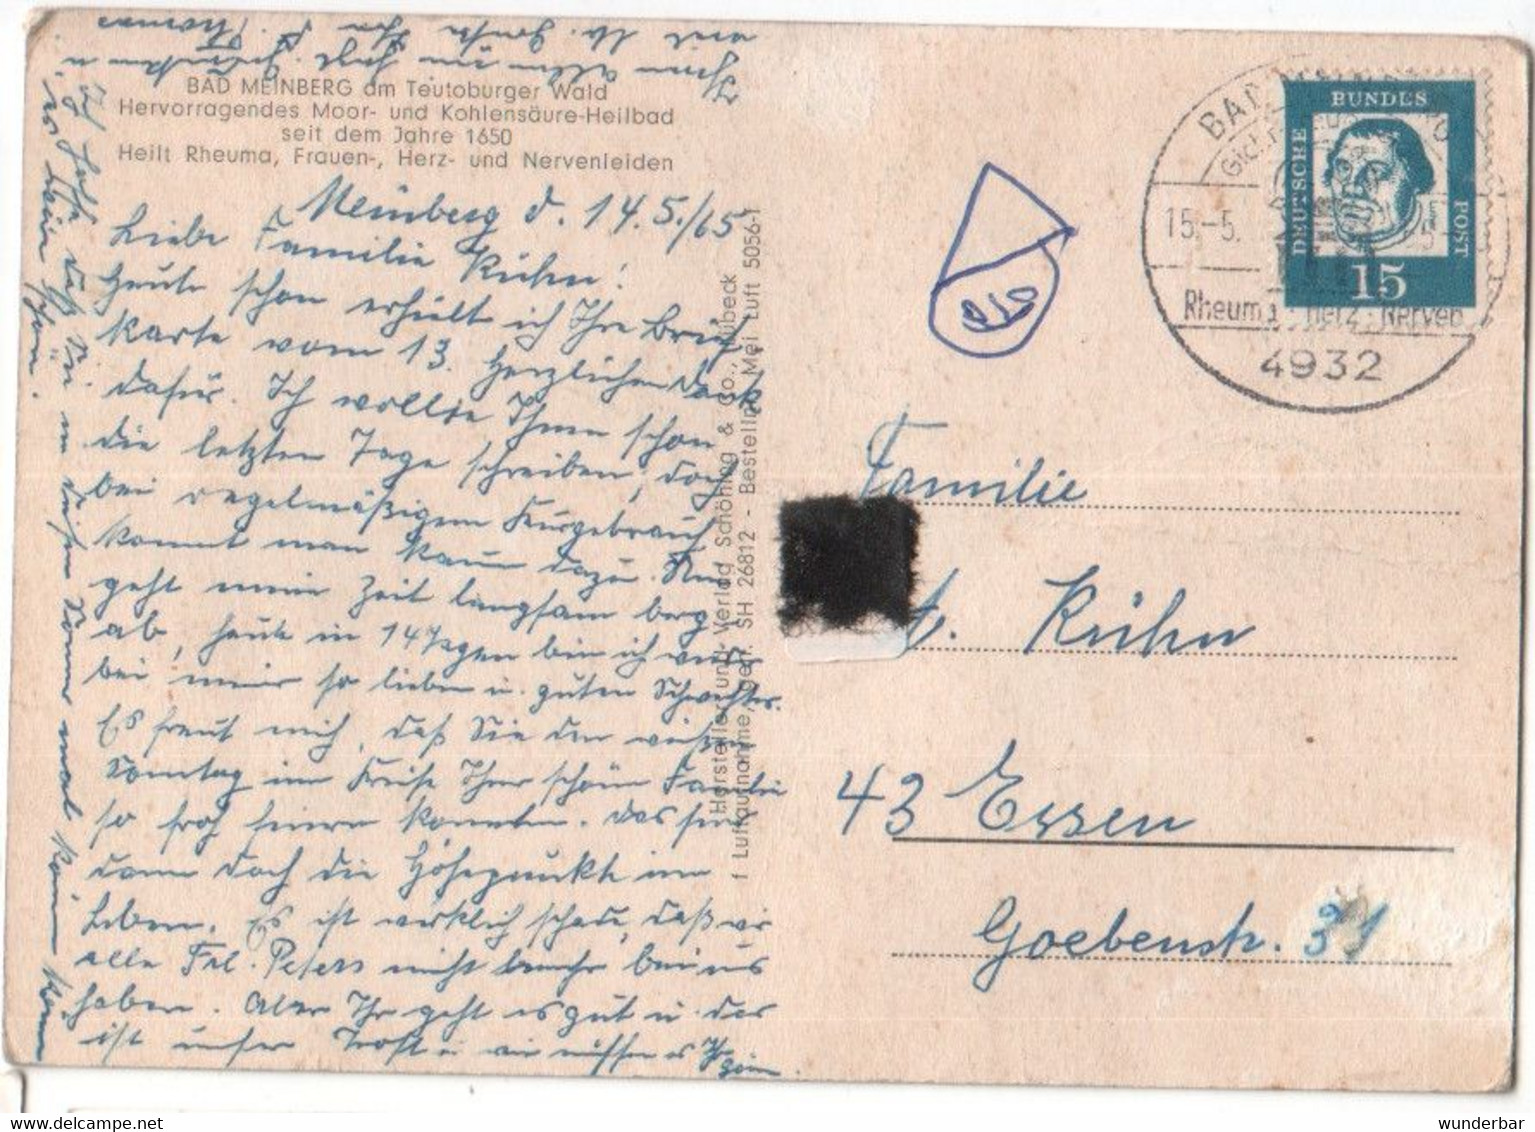 BAD MEINBERG am Teutoburger Wald
Hervorragendes Moor- und Kohlensäure-Heilbad
seit dem Jahre 1650
Heilt Rheuma, Frauen-, Herz- und Nervenleiden
Meinberg d. 14.5./65
Liebe Familie Kühn!
Heute schon erhielt ich Ihre Brief
karte vom 13. Herzlichen Dank
dafür. Ich wollte Ihnen schon
die letzten Tage schreiben, doch
bei regelmäßigem Kurgebrauch
kommt man kaum dazu. Nun
geht meine Zeit langsam berg
ab, heute in 14 Tagen bin ich
bei meiner so lieben u. guten Schwester.
Es freut mich, daß Sie den weißen
Sonntag im Kreise Ihrer schönen Familie
so froh feiern konnten. Das sind
dann doch die Höhepunkte im
Leben. Es ist wirklich schade, daß wir
alle Frl. Peters nicht mehr bei uns
haben. Aber Ihr geht es gut u. das
ist unser Trost
Hersteller und Verlag Schöning & Co., Lübeck
Luftaufnahme, gen. SH 26812 - Bestelln. Mei Luft 5056-1
DEUTSCHE
BUNDES
POST
Luther
15
15.-5.
Rheuma Herz Nerven
4932
Familie
Kühn
43 Essen
Goebenstr. 31
wunderbar